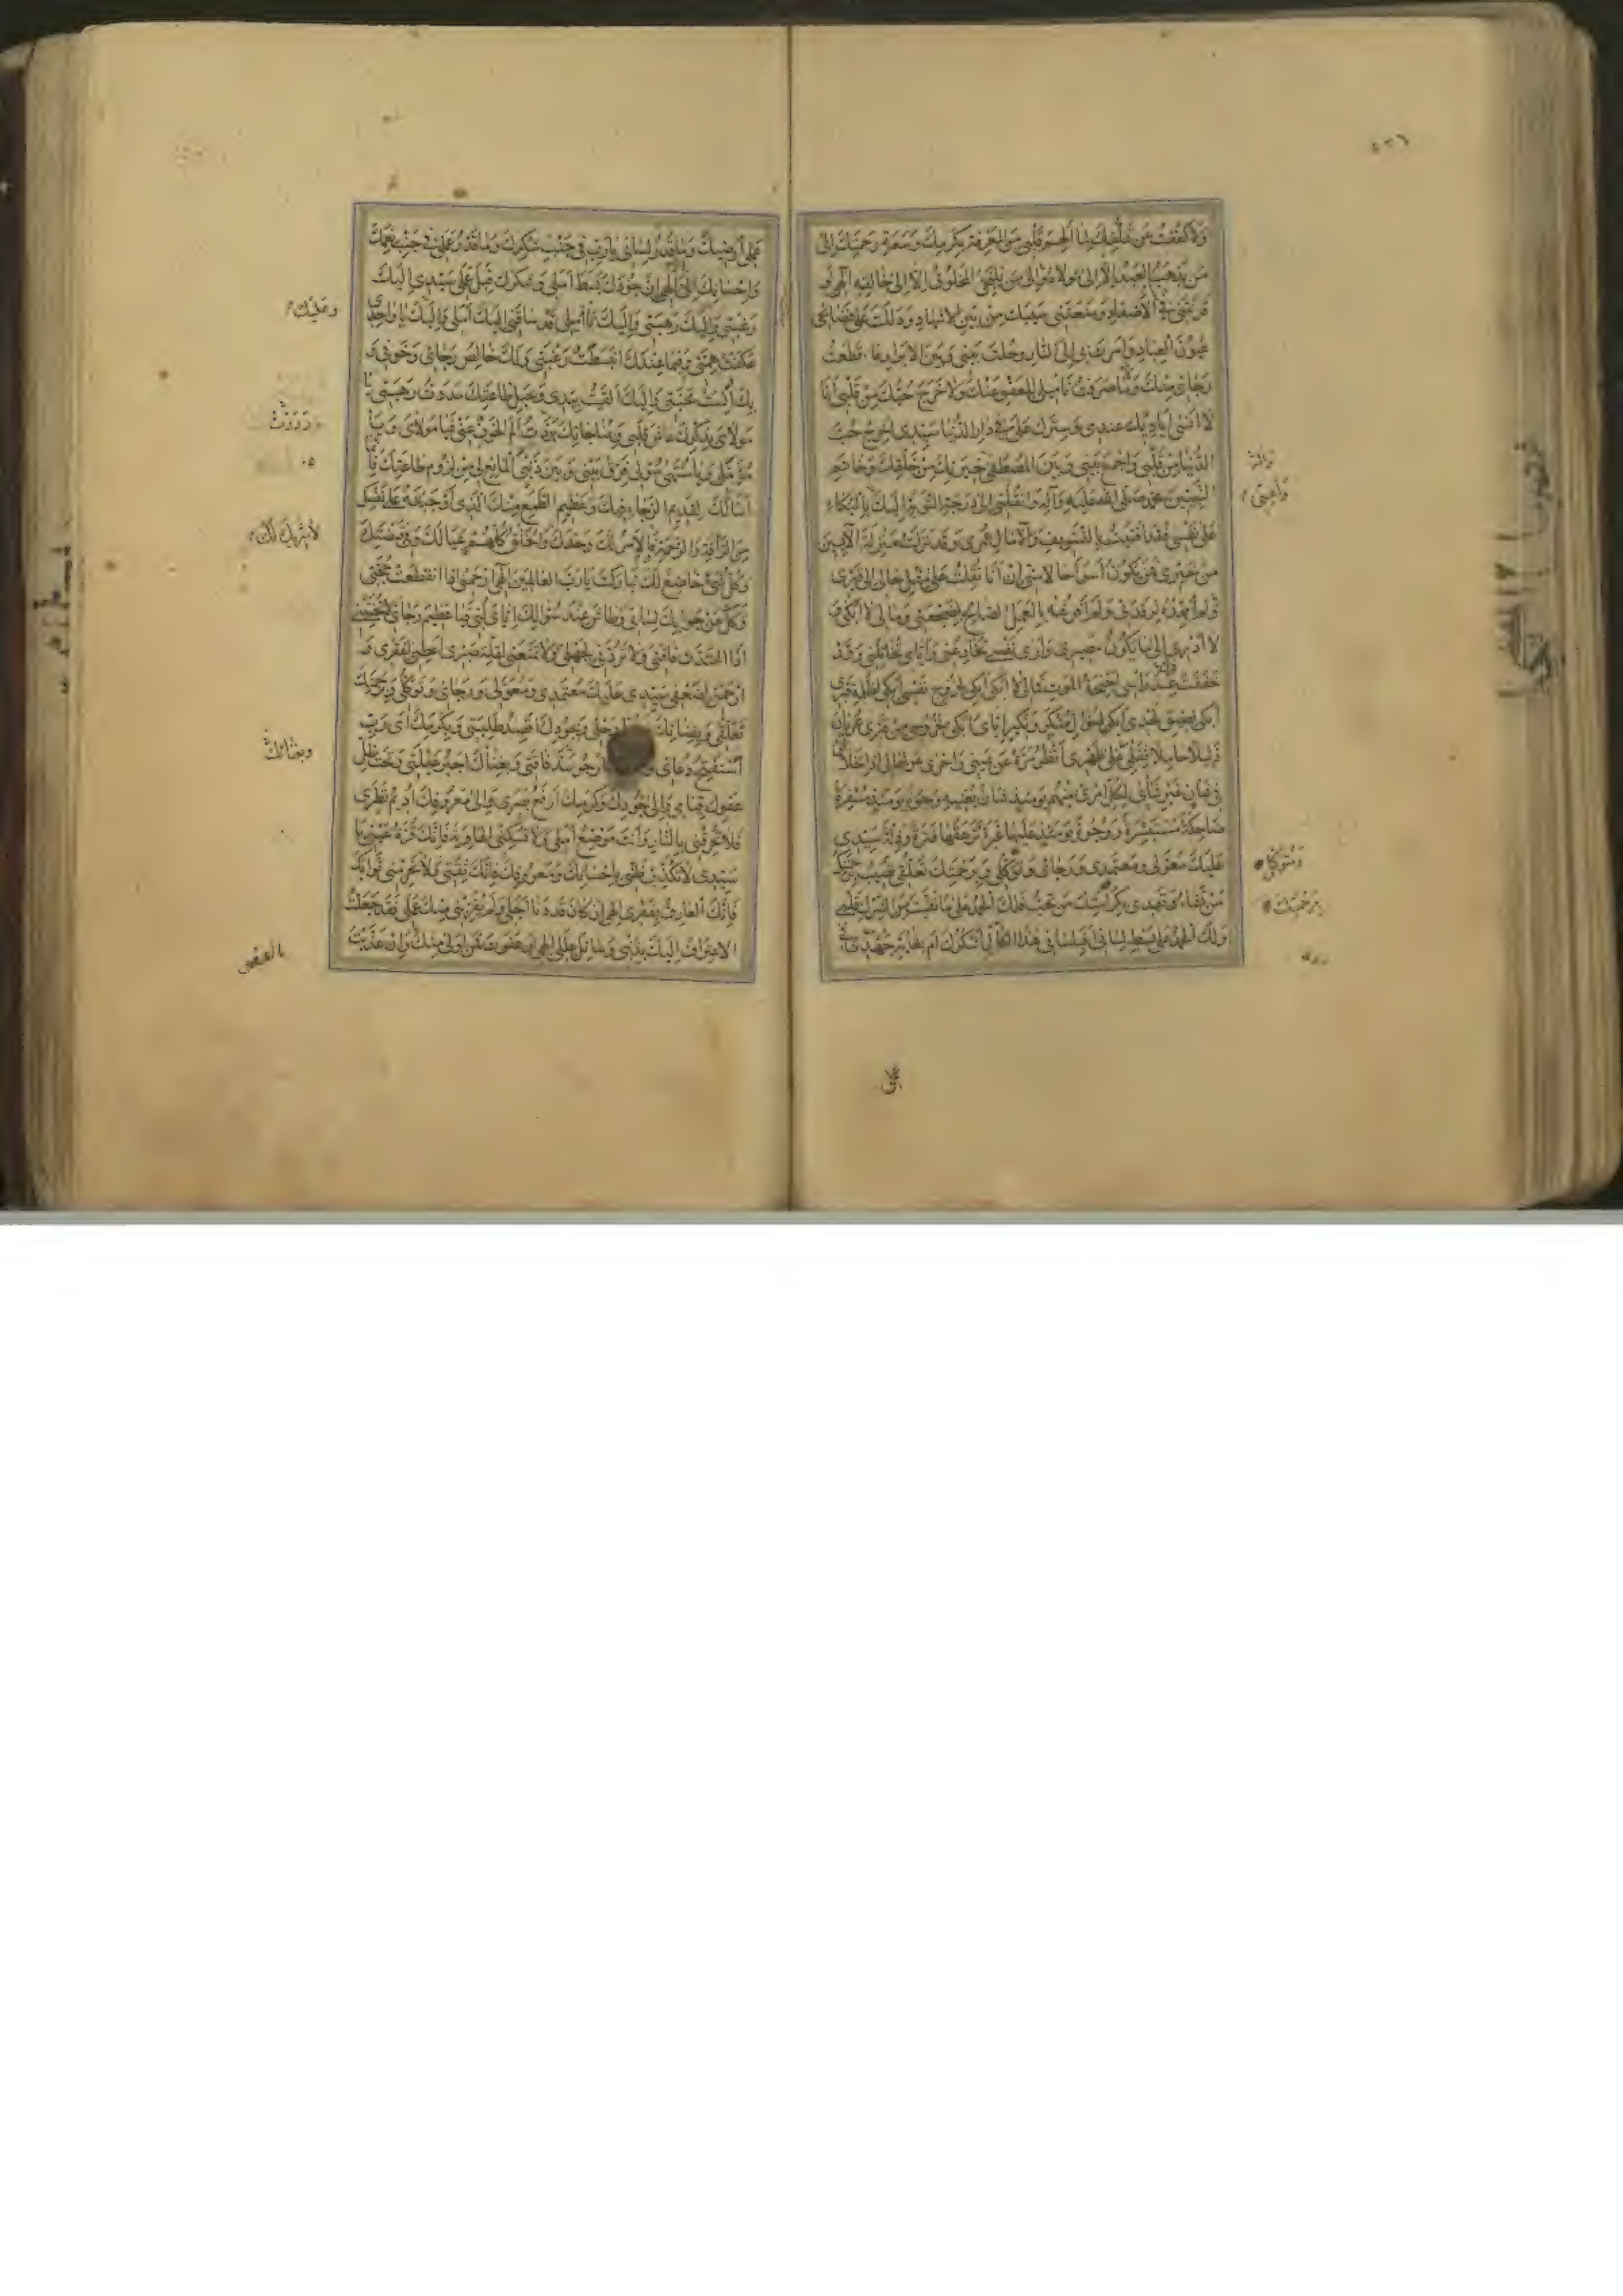 وَلا كَفَفْتُ عَنْ تَمَلُّقِكَ لِمَا اُلْهِمَ قَلْبِي مِنَ الْمَعْرِفَةِ بِكَرَمِكَ وَسَعَةِ رَحْمَتِكَ اِلىٰ
مَنْ يَذْهَبُ الْعَبْدُ اِلّا اِلى مَوْلاهُ وَاِلى مَنْ يَلْتَجِئُ الْمَخْلُوقُ اِلّا اِلى خالِقِهِ اِلٰهي لَوْ
قَرَنْتَني فِي الْاَصْفادِ وَمَنَعْتَني سَيْبَكَ مِنْ بَيْنِ الْاَشْهادِ وَدَلَلْتَ عَلى فَضايِحي
عُيُونَ الْعِبادِ وَاَمَرْتَ بي اِلَى النّارِ وَحُلْتَ بَيْني وَبَيْنَ الْاَبْرارِ ما قَطَعْتُ
رَجائي مِنْكَ وَما صَرَفْتُ تَاْميلي لِلْعَفْوِ عَنْكَ وَلا خَرَجَ حُبُّكَ مِنْ قَلْبي اَنَا
لا اَنْسى اَيادِيَكَ عِنْدي وَسِتْرَكَ عَلَيَّ في دارِ الدُّنْيا سَيِّدي اَخْرِجْ حُبَّ
الدُّنْيا مِنْ قَلْبي وَاجْمَعْ بَيْني وَبَيْنَ الْمُصْطَفى خِيَرَتِكَ مِنْ خَلْقِكَ وَخاتَمِ
النَّبِيّينَ مُحَمَّدٍ صَلَّى اللهُ عَلَيْهِ وَآلِهِ وَانْقُلْني اِلى دَرَجَةِ التَّوْبَةِ اِلَيْكَ بِالْبُكاءِ
عَلى نَفْسي فَقَدْ اَفْنَيْتُ بِالتَّسْويفِ وَالْآمالِ عُمْري وَقَدْ نَزَلْتُ مَنْزِلَةَ الْآيِسينَ
مِنْ خَيْري فَمَنْ يَكُونُ اَسْوَاَ حالًا مِنّي اِنْ اَنَا نُقِلْتُ عَلى مِثْلِ حالي اِلى قَبْري
وَلَمْ اُمَهِّدْهُ لِرَقْدَتي وَلَمْ اَفْرُشْهُ بِالْعَمَلِ الصّالِحِ لِضَجْعَتي وَما لي لا اَبْكي وَ
لا اَدْري اِلى ما يَكُونُ مَصيري وَاَرى نَفْسي تُخادِعُني وَاَيّامي تُخاتِلُني وَقَدْ
خَفَقَتْ عِنْدَ رَاْسي اَجْنِحَةُ الْمَوْتِ فَما لي لا اَبْكي اَبْكي لِخُرُوجِ نَفْسي اَبْكي لِظُلْمَةِ قَبْري
اَبْكي لِضيقِ لَحْدي اَبْكي لِسُؤالِ مُنْكَرٍ وَنَكيرٍ اِيّايَ اَبْكي لِخُرُوجي مِنْ قَبْري عُرْيانًا
ذَليلًا حامِلًا ثِقْلي عَلى ظَهْري اَنْظُرُ مَرَّةً عَنْ يَميني وَاُخْرى عَنْ شِمالي اِذِ الْخَلائِقُ
في شَاْنٍ غَيْرِ شَاْني لِكُلِّ امْرِئٍ مِنْهُمْ يَوْمَئِذٍ شَاْنٌ يُغْنيهِ وُجُوهٌ يَوْمَئِذٍ مُسْفِرَةٌ
ضاحِكَةٌ مُسْتَبْشِرَةٌ وَوُجُوهٌ يَوْمَئِذٍ عَلَيْها غَبَرَةٌ تَرْهَقُها قَتَرَةٌ وَذِلَّةٌ سَيِّدي
عَلَيْكَ مُعَوَّلي وَمُعْتَمَدي وَرَجائي وَتَوَكُّلي وَبِرَحْمَتِكَ تَعَلُّقي تُصيبُ بِرَحْمَتِكَ
مَنْ تَشاءُ وَتَهْدي بِكَرامَتِكَ مَنْ تُحِبُّ فَلَكَ الْحَمْدُ عَلى ما نَقَّيْتَ مِنَ الشِّرْكِ قَلْبي
وَلَكَ الْحَمْدُ عَلى بَسْطِ لِساني اَفَبِلِساني هٰذَا الْكالِّ اَشْكُرُكَ اَمْ بِغايَةِ جُهْدي في
عَمَلي اُرْضيكَ وَما قَدْرُ لِساني يا رَبِّ في جَنْبِ شُكْرِكَ وَما قَدْرُ عَمَلي في جَنْبِ نِعَمِكَ
وَاِحْسانِكَ اِلَيَّ اِلٰهي اِنَّ جُودَكَ بَسَطَ اَمَلي وَشُكْرَكَ قَبِلَ عَمَلي سَيِّدي اِلَيْكَ
رَغْبَتي وَاِلَيْكَ رَهْبَتي وَاِلَيْكَ تَاْميلي قَدْ ساقَني اِلَيْكَ اَمَلي وَاِلَيْكَ يا واحِدي
عَكَفَتْ هِمَّتي وَفيما عِنْدَكَ انْبَسَطَتْ رَغْبَتي وَلَكَ خالِصُ رَجائي وَخَوْفي وَ
بِكَ اَنِسَتْ مَحَبَّتي وَاِلَيْكَ اَلْقَيْتُ بِيَدي وَبِحَبْلِ طاعَتِكَ مَدَدْتُ رَهْبَتي يا
مَوْلايَ بِذِكْرِكَ عاشَ قَلْبي وَبِمُناجاتِكَ بَرَّدْتُ اَلَمَ الْخَوْفِ عَنّي فَيا مَوْلايَ وَيا
مُؤَمَّلي وَيا مُنْتَهى سُؤْلي فَرِّقْ بَيْني وَبَيْنَ ذَنْبِيَ الْمانِعِ لي مِنْ لُزُومِ طاعَتِكَ فَاِنَّما
اَسْاَلُكَ لِقَديمِ الرَّجاءِ فيكَ وَعَظيمِ الطَّمَعِ مِنْكَ الَّذي اَوْجَبْتَهُ عَلى نَفْسِكَ
مِنَ الرَّاْفَةِ وَالرَّحْمَةِ فَالْاَمْرُ لَكَ وَحْدَكَ وَالْخَلْقُ كُلُّهُمْ عِيالُكَ وَفي قَبْضَتِكَ
وَكُلُّ شَيْءٍ خاضِعٌ لَكَ تَبارَكْتَ يا رَبَّ الْعالَمينَ اِلٰهي ارْحَمْني اِذَا انْقَطَعَتْ حُجَّتي
وَكَلَّ عَنْ جَوابِكَ لِساني وَطاشَ عِنْدَ سُؤالِكَ اِيّايَ لُبّي فَيا عَظيمَ رَجائي لا تُخَيِّبْني
اِذَا اشْتَدَّتْ فاقَتي وَلا تَرُدَّني لِجَهْلي وَلا تَمْنَعْني لِقِلَّةِ صَبْري اَعْطِني لِفَقْري وَ
ارْحَمْني لِضَعْفي سَيِّدي عَلَيْكَ مُعْتَمَدي وَمُعَوَّلي وَرَجائي وَتَوَكُّلي وَبِرَحْمَتِكَ
تَعَلُّقي وَبِفِنائِكَ رَحْلي وَبِجُودِكَ اَقْصِدُ طَلِبَتي وَبِكَرَمِكَ اَيْ رَبِّ
اَسْتَفْتِحُ دُعائي اَرْجُو سَدَّ فاقَتي وَبِغِناكَ اَجْبُرُ عَيْلَتي وَتَحْتَ ظِلِّ
عَفْوِكَ قِيامي وَاِلى جُودِكَ وَكَرَمِكَ اَرْفَعُ بَصَري وَاِلى مَعْرُوفِكَ اُديمُ نَظَري
فَلا تُحْرِقْني بِالنّارِ وَاَنْتَ مَوْضِعُ اَمَلي وَلا تُسْكِنِّي الْهاوِيَةَ فَاِنَّكَ قُرَّةُ عَيْني يا
سَيِّدي لا تُكَذِّبْ ظَنّي بِاِحْسانِكَ وَمَعْرُوفِكَ فَاِنَّكَ ثِقَتي وَلا تَحْرِمْني ثَوابَكَ
فَاِنَّكَ الْعارِفُ بِفَقْري اِلٰهي اِنْ كانَ قَدْ دَنا اَجَلي وَلَمْ يُقَرِّبْني مِنْكَ عَمَلي فَقَدْ جَعَلْتُ
الْاِعْتِرافَ اِلَيْكَ بِذَنْبي وَسائِلَ عِلَلي اِلٰهي اِنْ عَفَوْتَ فَمَنْ اَوْلى مِنْكَ وَاِنْ عَذَّبْتَ